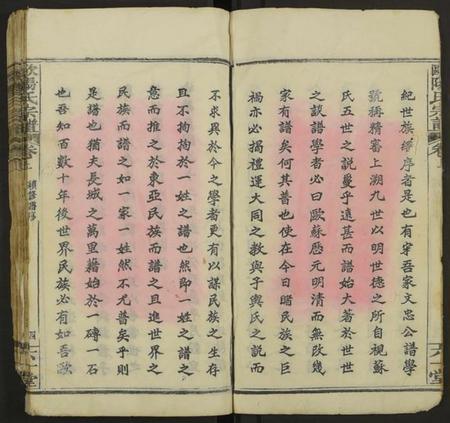 歐陽氏宗譜
卷
六一堂
紀世族繹序者是也有宋吾家文忠公譜學
號稱精審上溯九世以明世德之所自視蘇
氏五世之說夐乎遠甚而譜始大著於世世
之談譜學者必曰歐蘇歷元明清而無改幾
家有譜矣何其普也使在今日睹民族之巨
禍亦必揭禮運大同之教與子輿氏之說而
不求異於今之學者更有以謀民族之生存
且不拘拘於一姓之譜也然即一姓之譜之
意而推之於東亞民族而譜之且進世界之
民族而譜之如一家一姓然不尤普矣乎則
是譜也猶夫長城之萬里藉始於一磚一石
也吾知百數十年後世界民族必有如吾歐
歐陽氏宗譜
卷
四
六一堂